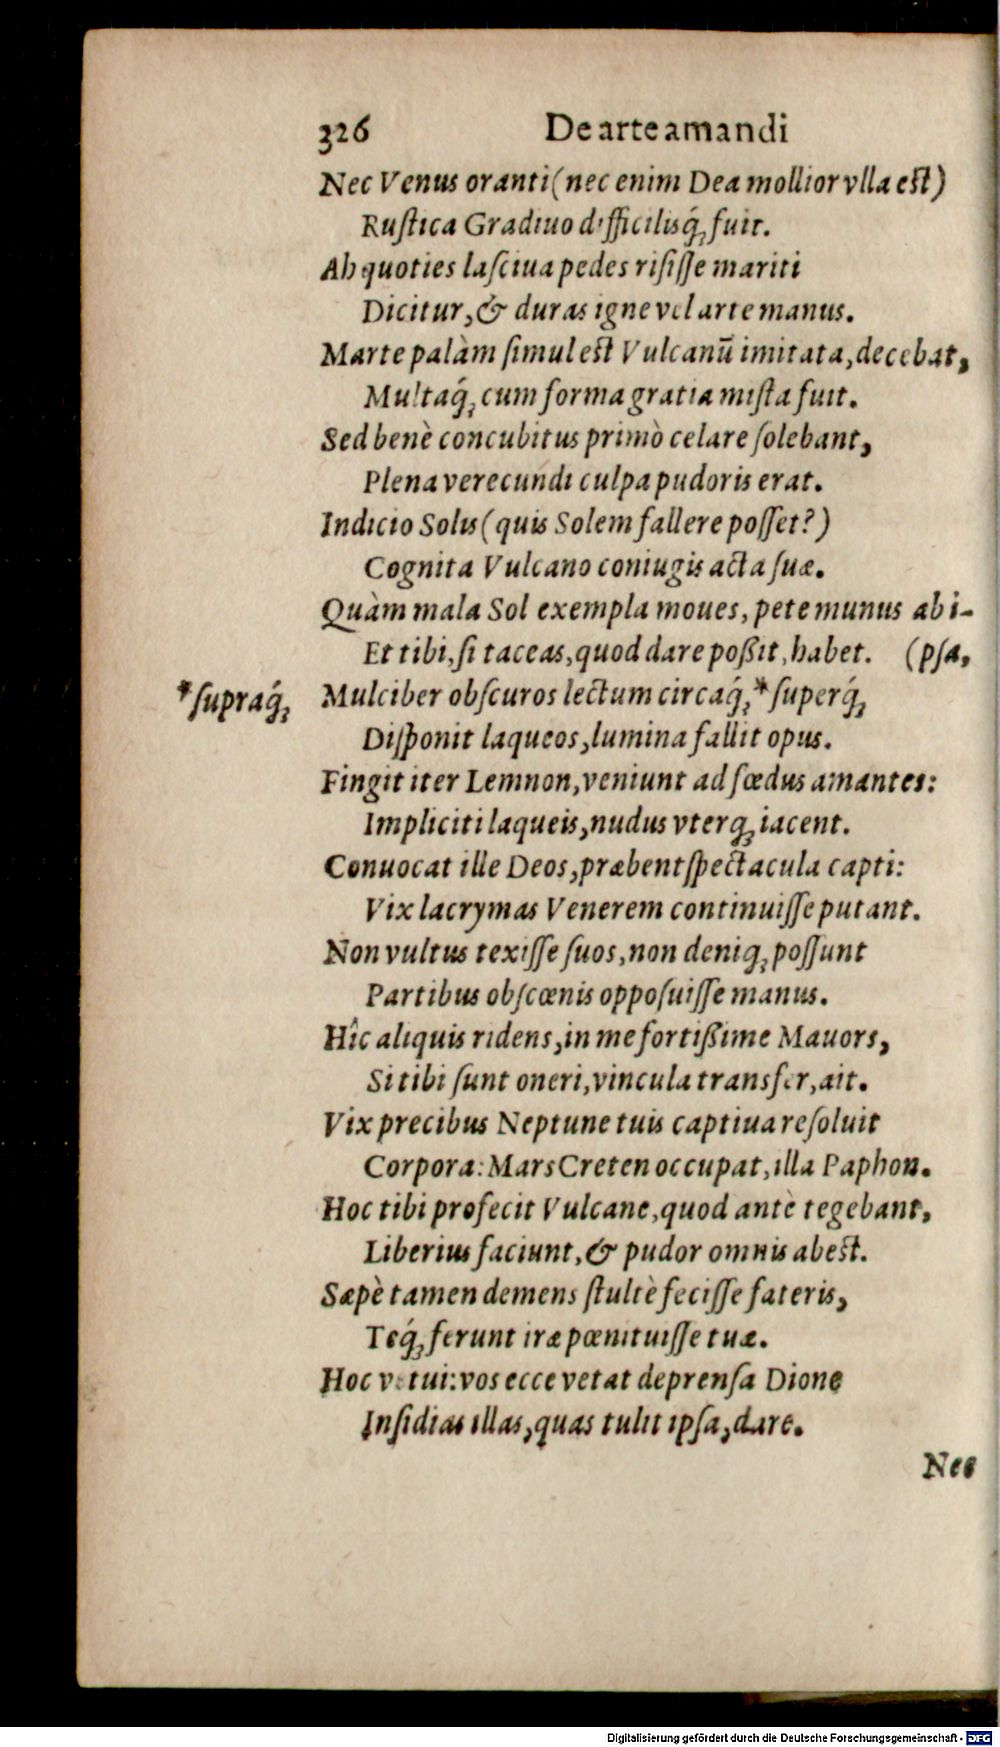 326 De arte amandi
Nec Venus oranti (nec enim Dea mollior vlla est)
Rustica Gradiuo difficilisq́; fuit.
Ah quoties lasciua pedes risisse mariti
Dicitur, & duras igne vel arte manus.
Marte palàm simul est Vulcanū imitata, decebat,
Multaq́; cum forma gratia mista fuit.
Sed benè concubitus primò celare solebant,
Plena verecundi culpa pudoris erat.
Indicio Solis (quis Solem fallere posset?)
Cognita Vulcano coniugis acta suæ.
Quàm mala Sol exempla moues, pete munus ab i-
Et tibi, si taceas, quod dare poßit, habet. (psa,
*supraq́; Mulciber obscuros lectum circaq́; *superq́;
Disponit laqueos, lumina fallit opus.
Fingit iter Lemnon, veniunt ad fœdus amantes:
Impliciti laqueis, nudus vterq; iacent.
Conuocat ille Deos, præbent spectacula capti:
Vix lacrymas Venerem continuisse putant.
Non vultus texisse suos, non deniq; possunt
Partibus obscœnis opposuisse manus.
Hîc aliquis ridens, in me fortißime Mauors,
Si tibi sunt oneri, vincula transfer, ait.
Vix precibus Neptune tuis captiua resoluit
Corpora: Mars Creten occupat, illa Paphon.
Hoc tibi profecit Vulcane, quod antè tegebant,
Liberius faciunt, & pudor omnis abest.
Sæpè tamen demens stultè fecisse fateris,
Teq́; ferunt iræ pœnituisse tuæ.
Hoc vetui: vos ecce vetat deprensa Dione
Insidias illas, quas tulit ipsa, dare.
Nec
Digitalisierung gefördert durch die Deutsche Forschungsgemeinschaft - DFG